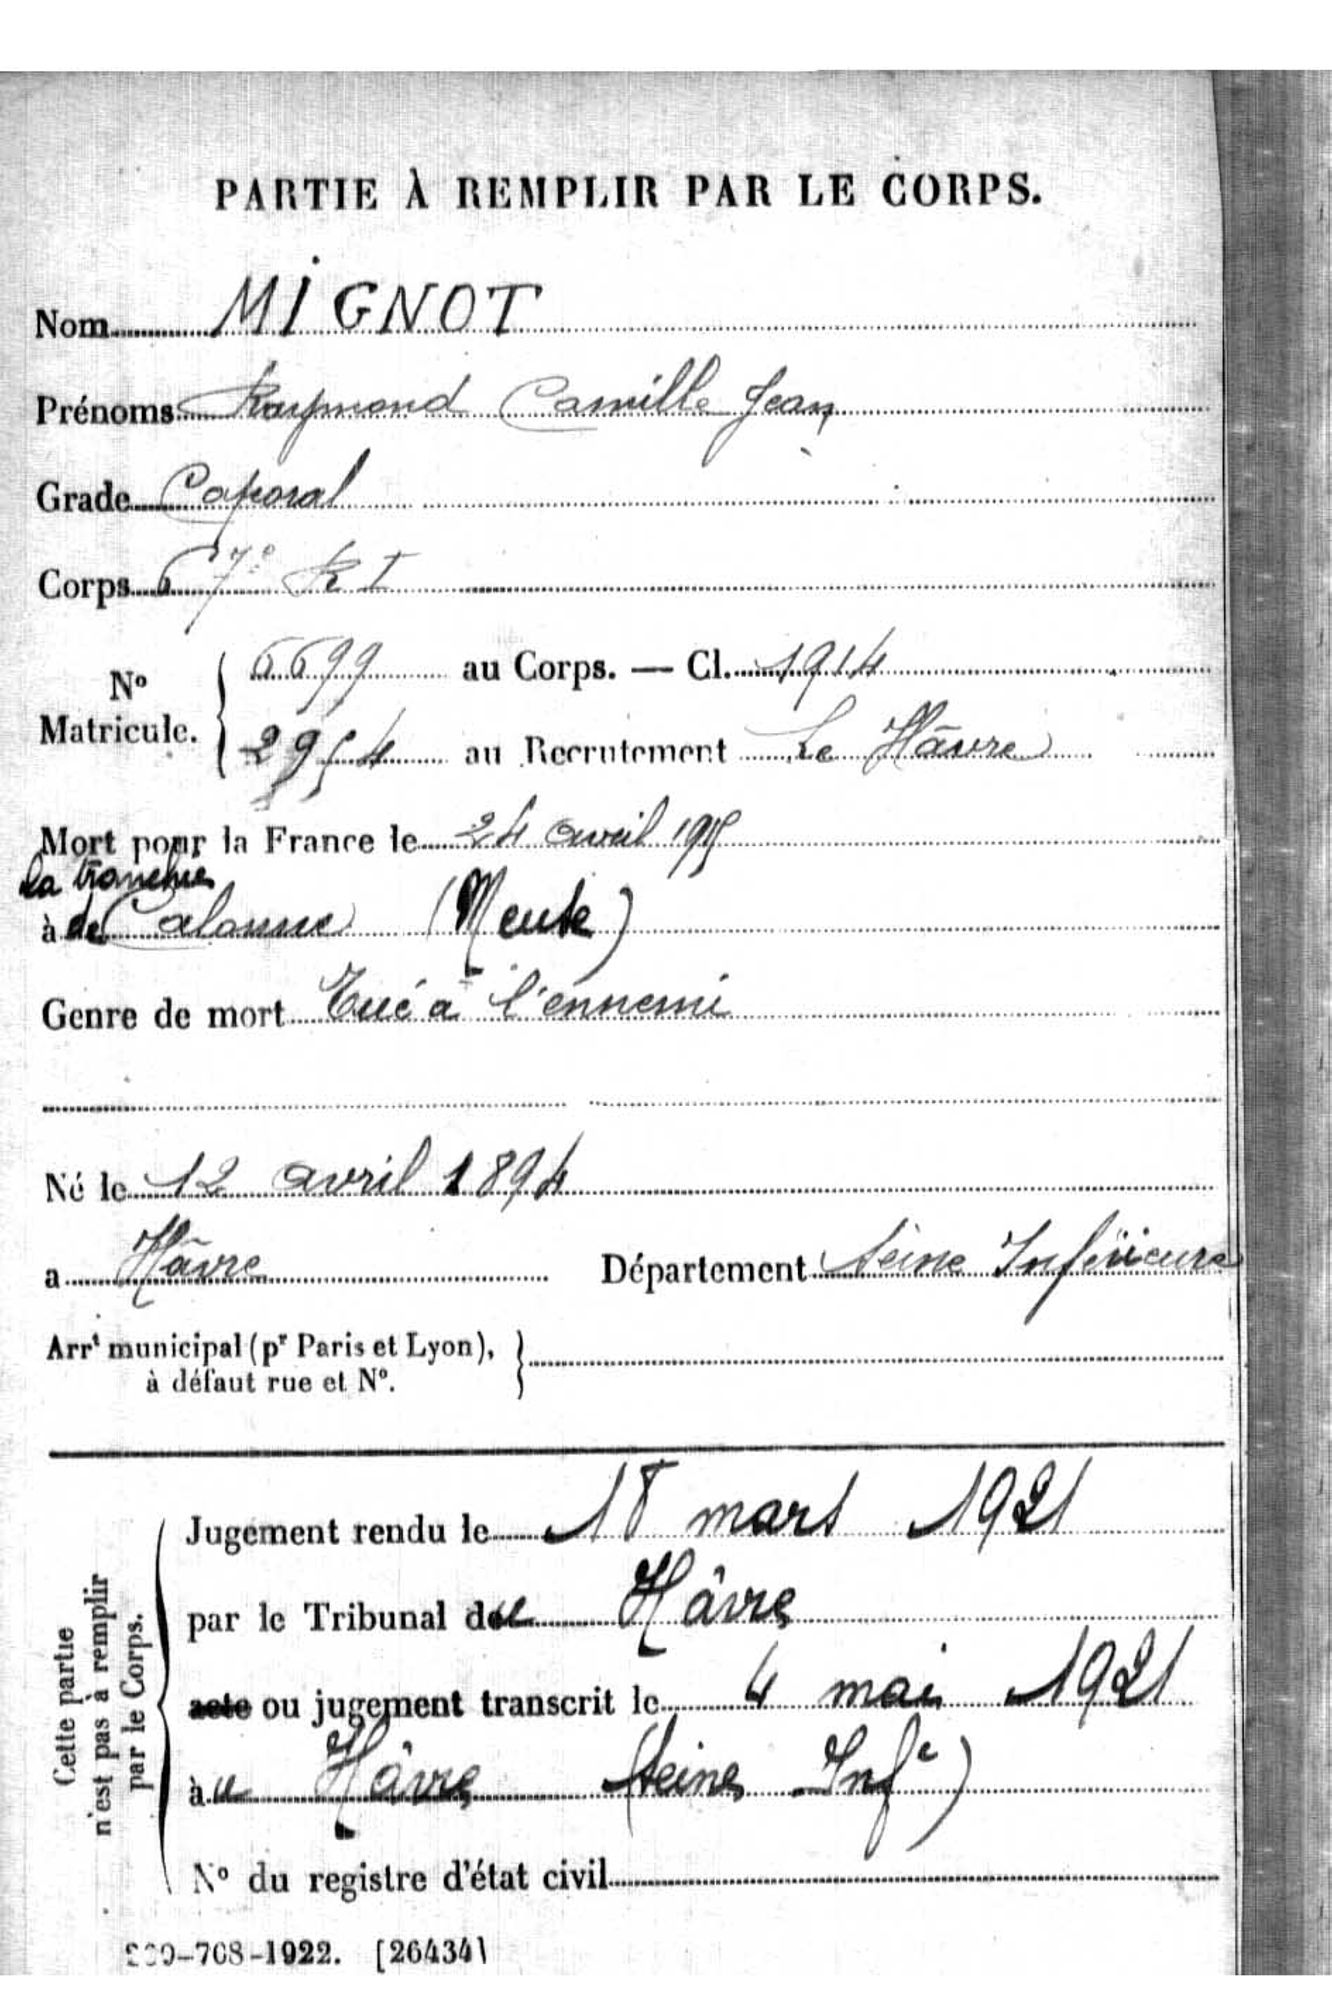 PARTIE À REMPLIR PAR LE CORPS.
Nom MIGNOT
Prénoms Raymond Camille Jean
Grade Caporal
Corps 67e R I
No Matricule. { 6699 au Corps. — Cl. 1914
2954 au Recrutement Le Hâvre
Mort pour la France le 24 avril 1915
la tranchée
à de Calonne (Meuse)
Genre de mort Tué à l'ennemi
Né le 12 avril 1894
à Hâvre Département Seine Inférieure
Arrt municipal (pr Paris et Lyon), }
à défaut rue et No.
Cette partie
n'est pas à remplir
par le Corps.
Jugement rendu le 18 mars 1921
par le Tribunal du Hâvre
acte ou jugement transcrit le 4 mai 1921
au Hâvre (Seine Infe)
No du registre d'état civil
-708-1922. [26434]